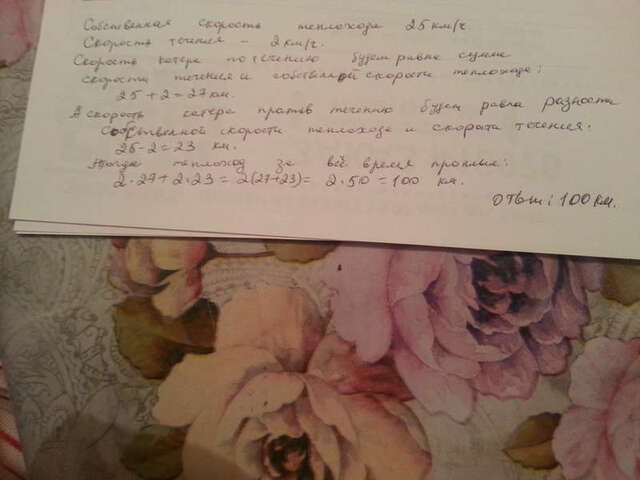 Собственная скорость теплохода 25 км/ч.
Скорость течения - 2 км/ч.
Скорость катера по течению будет равна сумме
скорости течения и собственной скорости теплохода:
25 + 2 = 27 км.
А скорость катера против течению будет равна разности
собственной скорости теплохода и скорости течения:
25 - 2 = 23 км.
Тогда теплоход за всё время проплыл:
2 · 27 + 2 · 23 = 2(27+23) = 2 · 50 = 100 км.
Ответ: 100 км.